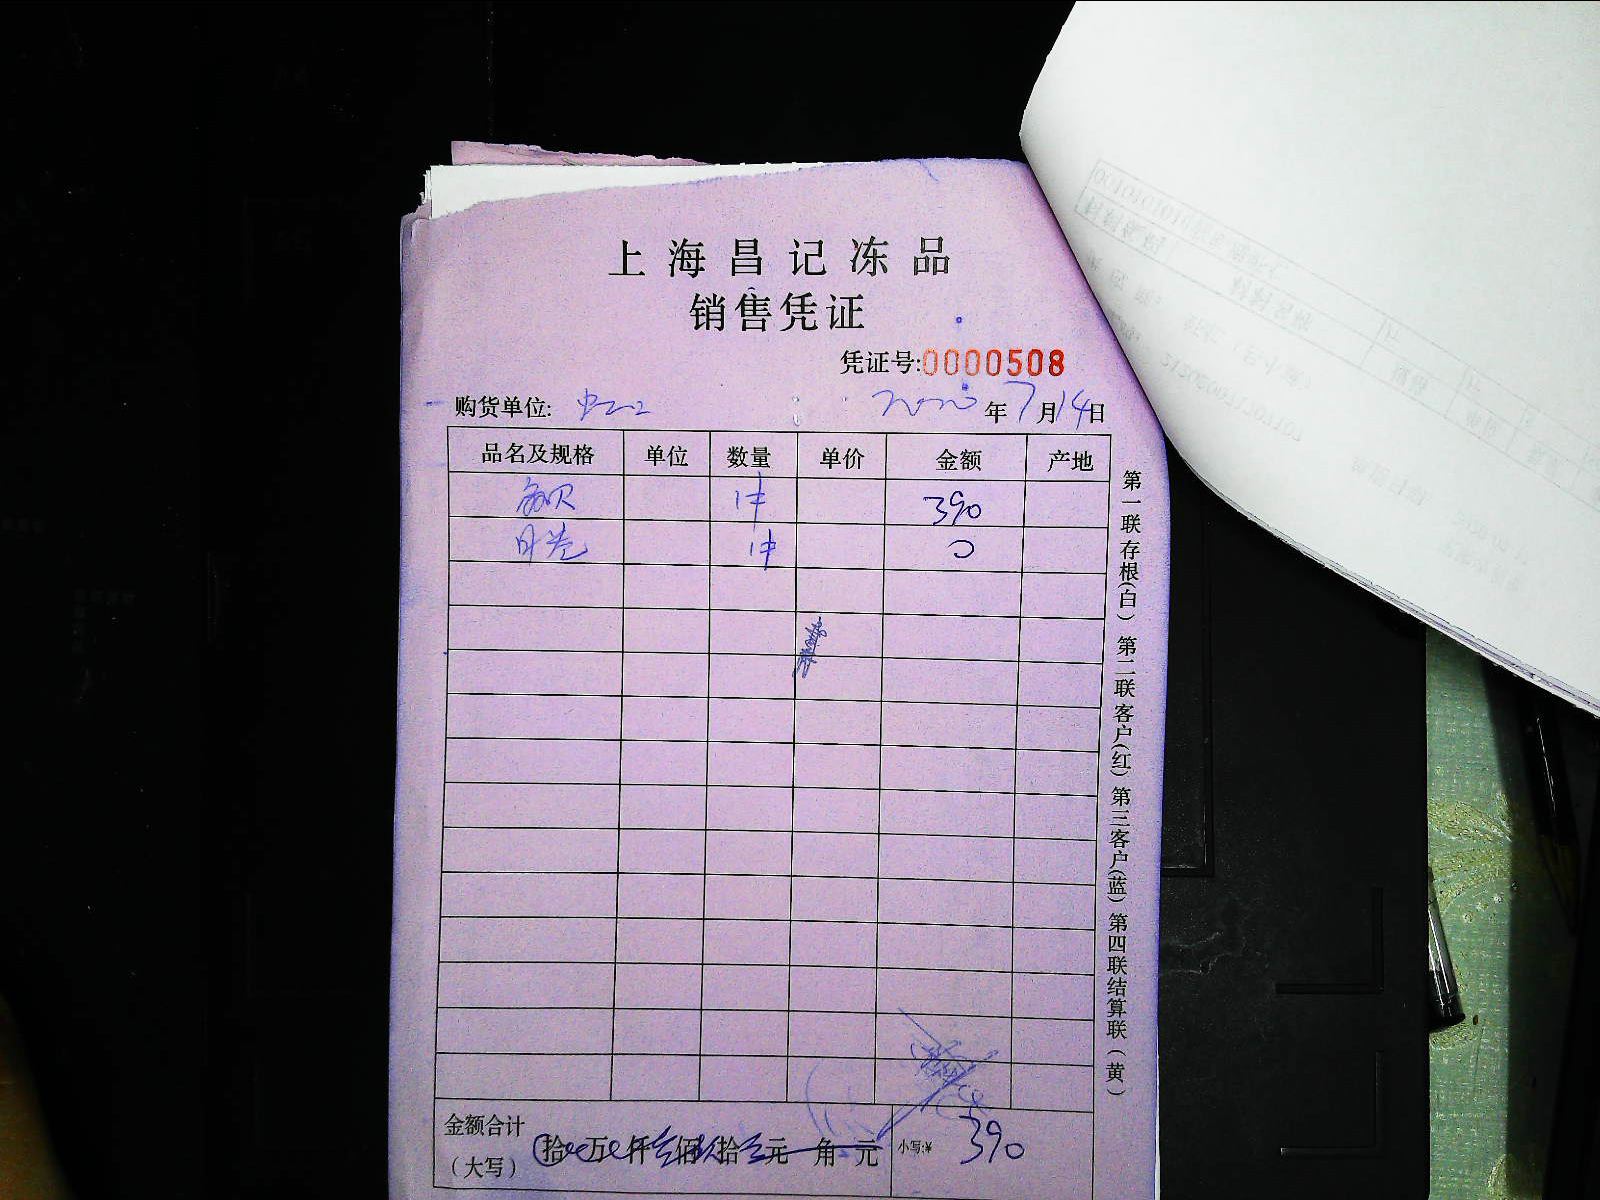 上海昌记冻品
销售凭证
凭证号:0000508
购货单位: 年7月14日
品名及规格 单位 数量 单价 金额 产地
1件 390
1件 0
金额合计
(大写) 拾 万 仟 佰 拾 元 角 元 小写:¥ 390
第一联存根(白) 第二联客户(红) 第三客户(蓝) 第四联结算联(黄)